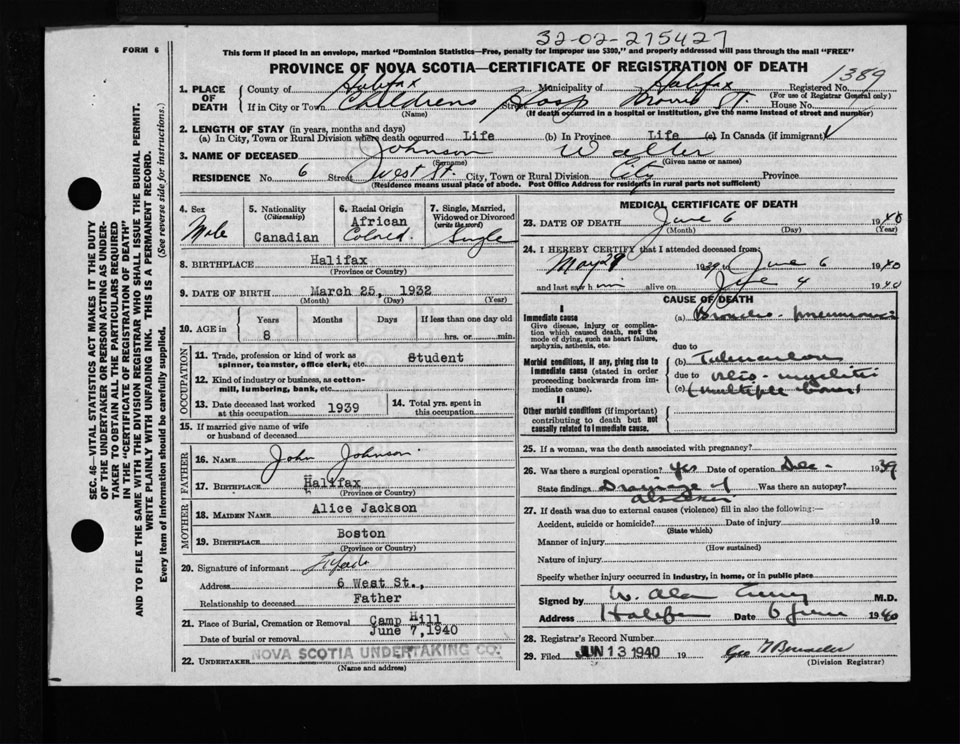 32-02-215427
FORM 6
This form if placed in an envelope, marked "Dominion Statistics—Free, penalty for improper use $300," and properly addressed will pass through the mail "FREE"
PROVINCE OF NOVA SCOTIA—CERTIFICATE OF REGISTRATION OF DEATH
1389
1. PLACE OF DEATH
County of Halifax Municipality of Halifax Registered No.
(For use of Registrar General only)
If in City or Town Childrens Hosp Street House No.
(Name) (If death occurred in a hospital or institution, give the name instead of street and number)
2. LENGTH OF STAY (in years, months and days)
(a) In City, Town or Rural Division where death occurred Life (b) In Province Life (c) In Canada (if immigrant)
3. NAME OF DECEASED Johnson Walter
(Surname) (Given name or names)
RESIDENCE No. 6 Street West St. City, Town or Rural Division City Province
(Residence means usual place of abode. Post Office Address for residents in rural parts not sufficient)
4. Sex Male
5. Nationality (Citizenship) Canadian
6. Racial Origin African Colored
7. Single, Married, Widowed or Divorced (write the word) Single
8. BIRTHPLACE Halifax
(Province or Country)
9. DATE OF BIRTH March 25, 1932
(Month) (Day) (Year)
10. AGE in Years Months Days If less than one day old
8 hrs. or min.
OCCUPATION
11. Trade, profession or kind of work as spinner, teamster, office clerk, etc. Student
12. Kind of industry or business, as cotton-mill, lumbering, bank, etc.
13. Date deceased last worked at this occupation 1939
14. Total yrs. spent in this occupation
15. If married give name of wife or husband of deceased
FATHER
16. NAME John Johnson
17. BIRTHPLACE Halifax
(Province or Country)
MOTHER
18. MAIDEN NAME Alice Jackson
19. BIRTHPLACE Boston
(Province or Country)
20. Signature of informant
Address 6 West St.,
Relationship to deceased Father
21. Place of Burial, Cremation or Removal Camp Hill
Date of burial or removal June 7,1940
22. UNDERTAKER NOVA SCOTIA UNDERTAKING CO.
(Name and address)
MEDICAL CERTIFICATE OF DEATH
23. DATE OF DEATH June 6 1940
(Month) (Day) (Year)
24. I HEREBY CERTIFY that I attended deceased from:
May 29 1939 to June 6 1940
and last saw him alive on June 4 1940
CAUSE OF DEATH
I
Immediate cause
Give disease, injury or complication which caused death, not the mode of dying, such as heart failure, asphyxia, asthenia, etc.
(a) Broncho-pneumonia
due to
Morbid conditions, if any, giving rise to immediate cause (stated in order proceeding backwards from immediate cause).
(b) Tuberculous
due to Osteo-myelitis
(c) (multiple bones)
II
Other morbid conditions (if important) contributing to death but not causally related to immediate cause.
25. If a woman, was the death associated with pregnancy?
26. Was there a surgical operation? Yes Date of operation Dec- 1939
State findings Drainage of abscess Was there an autopsy?
27. If death was due to external causes (violence) fill in also the following:—
Accident, suicide or homicide? Date of injury 19
(State which)
Manner of injury
(How sustained)
Nature of injury
Specify whether injury occurred in industry, in home, or in public place
Signed by W. Alan Curry M.D.
Address Halifax Date 6 June 1940
28. Registrar's Record Number
29. Filed JUN 13 1940 19
(Division Registrar)
SEC. 46—VITAL STATISTICS ACT MAKES IT THE DUTY
OF THE UNDERTAKER OR PERSON ACTING AS UNDER-
TAKER TO OBTAIN ALL THE PARTICULARS REQUIRED
IN THE "CERTIFICATE OF REGISTRATION OF DEATH"
AND TO FILE THE SAME WITH THE DIVISION REGISTRAR WHO SHALL ISSUE THE BURIAL PERMIT.
WRITE PLAINLY WITH UNFADING INK. THIS IS A PERMANENT RECORD.
Every item of information should be carefully supplied. (See reverse side for instructions.)